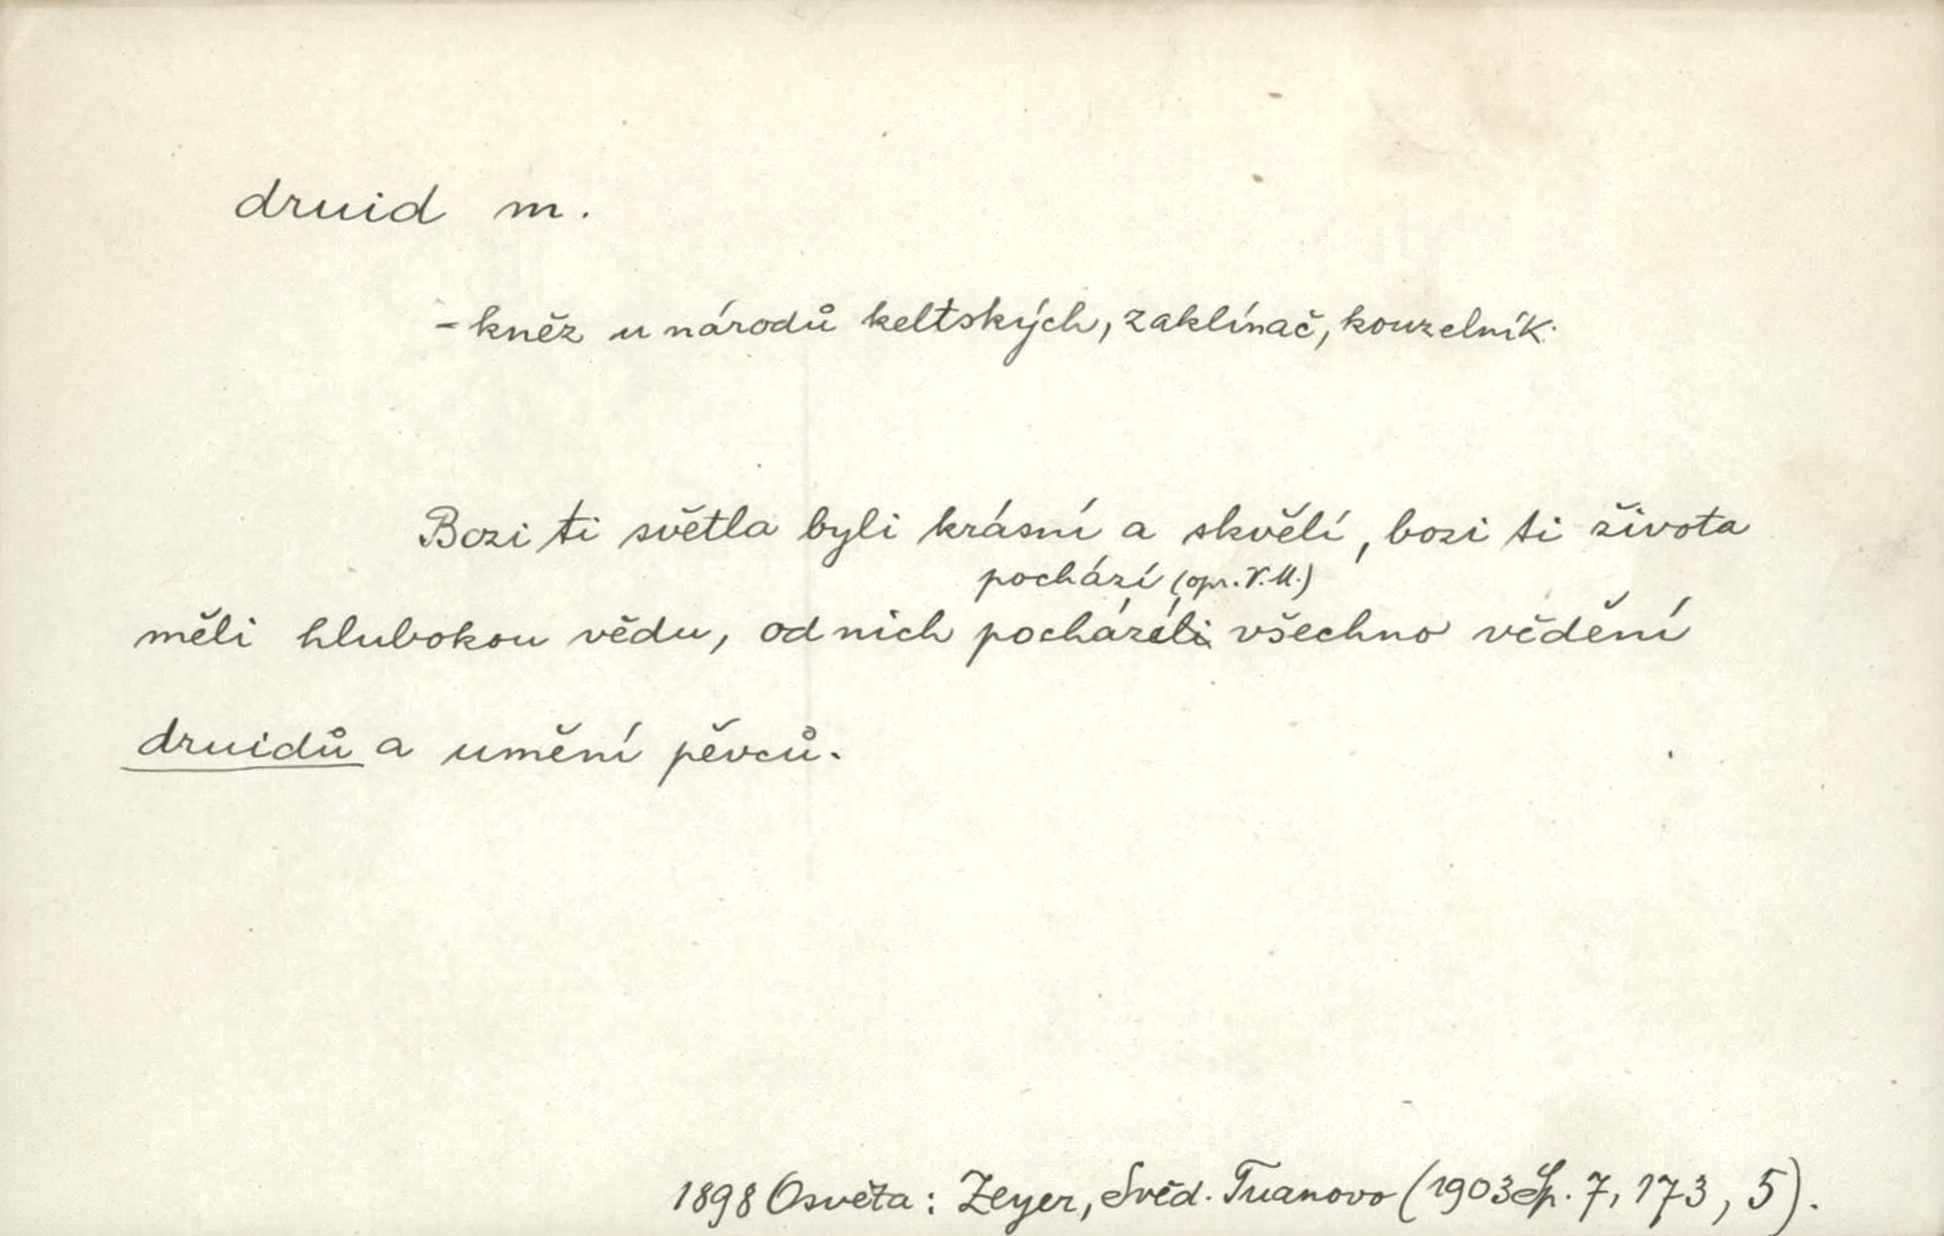 druid m.
- kněz u národů keltských, zaklínač, kouzelník.
Bozi ti světla byli krásní a skvělí, bozi ti života
pochází (opr. V. U.)
měli hlubokou vědu, od nich pocházéli všechno vědění
druidů a umění pěvců.
1898 Osvěta: Zeyer, Svěd. Tuanovo (1903 Sp. 7, 173, 5).